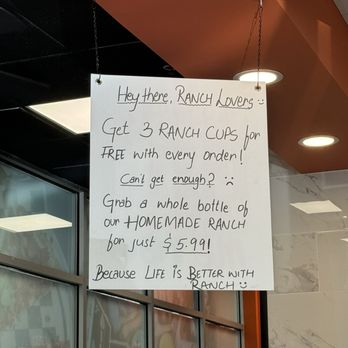 Hey there, RANCH Lovers :)
Get 3 RANCH CUPS for
FREE with every order!
Can't get enough? :(
Grab a whole bottle of
our HOMEMADE RANCH
for just $5.99!
Because LIFE is BETTER WITH
RANCH :)